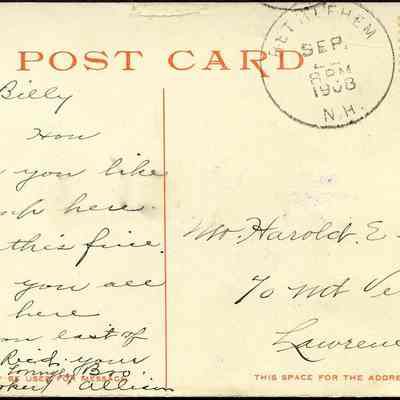 POST CARD
BETHLEHEM
SEP.
8 PM
1908
N.H.
Billy
How
you like
here
this fine
you all
here
last of
Reid your
Boo
Allison
Mr. Harold. E
70 Mt Ve
Lawrenc
BE USED FOR MESSAGE
THIS SPACE FOR THE ADDRE